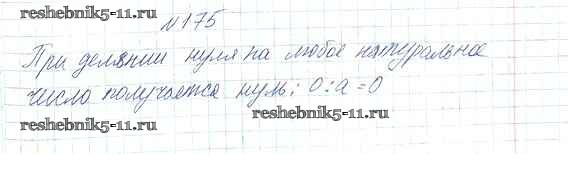 reshebnik5-11.ru
№175
При делении нуля на любое натуральное
число получается нуль: 0 : a = 0
reshebnik5-11.ru
reshebnik5-11.ru